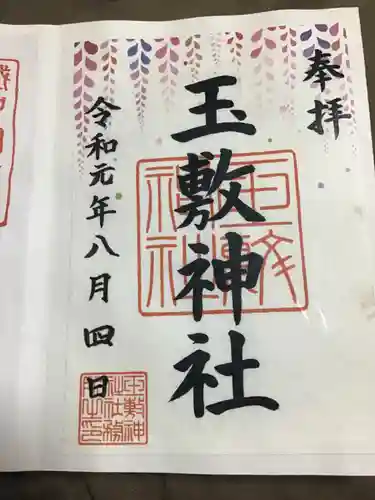 奉拝
玉敷神社
令和元年八月四日
玉敷神社
玉敷神社務之印